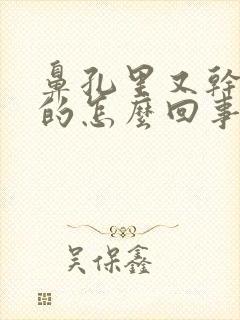 鼻孔里又幹
的怎麼回事
吴保鑫